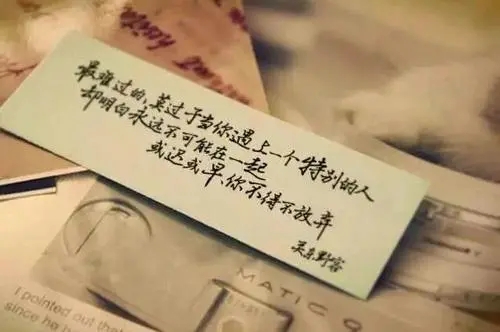 最难过的,莫过于当你遇上一个特别的人
却明白永远不可能在一起
或迟或早,你不得不放弃
吴东野客
MATIC 9
I pointed out that
since he h